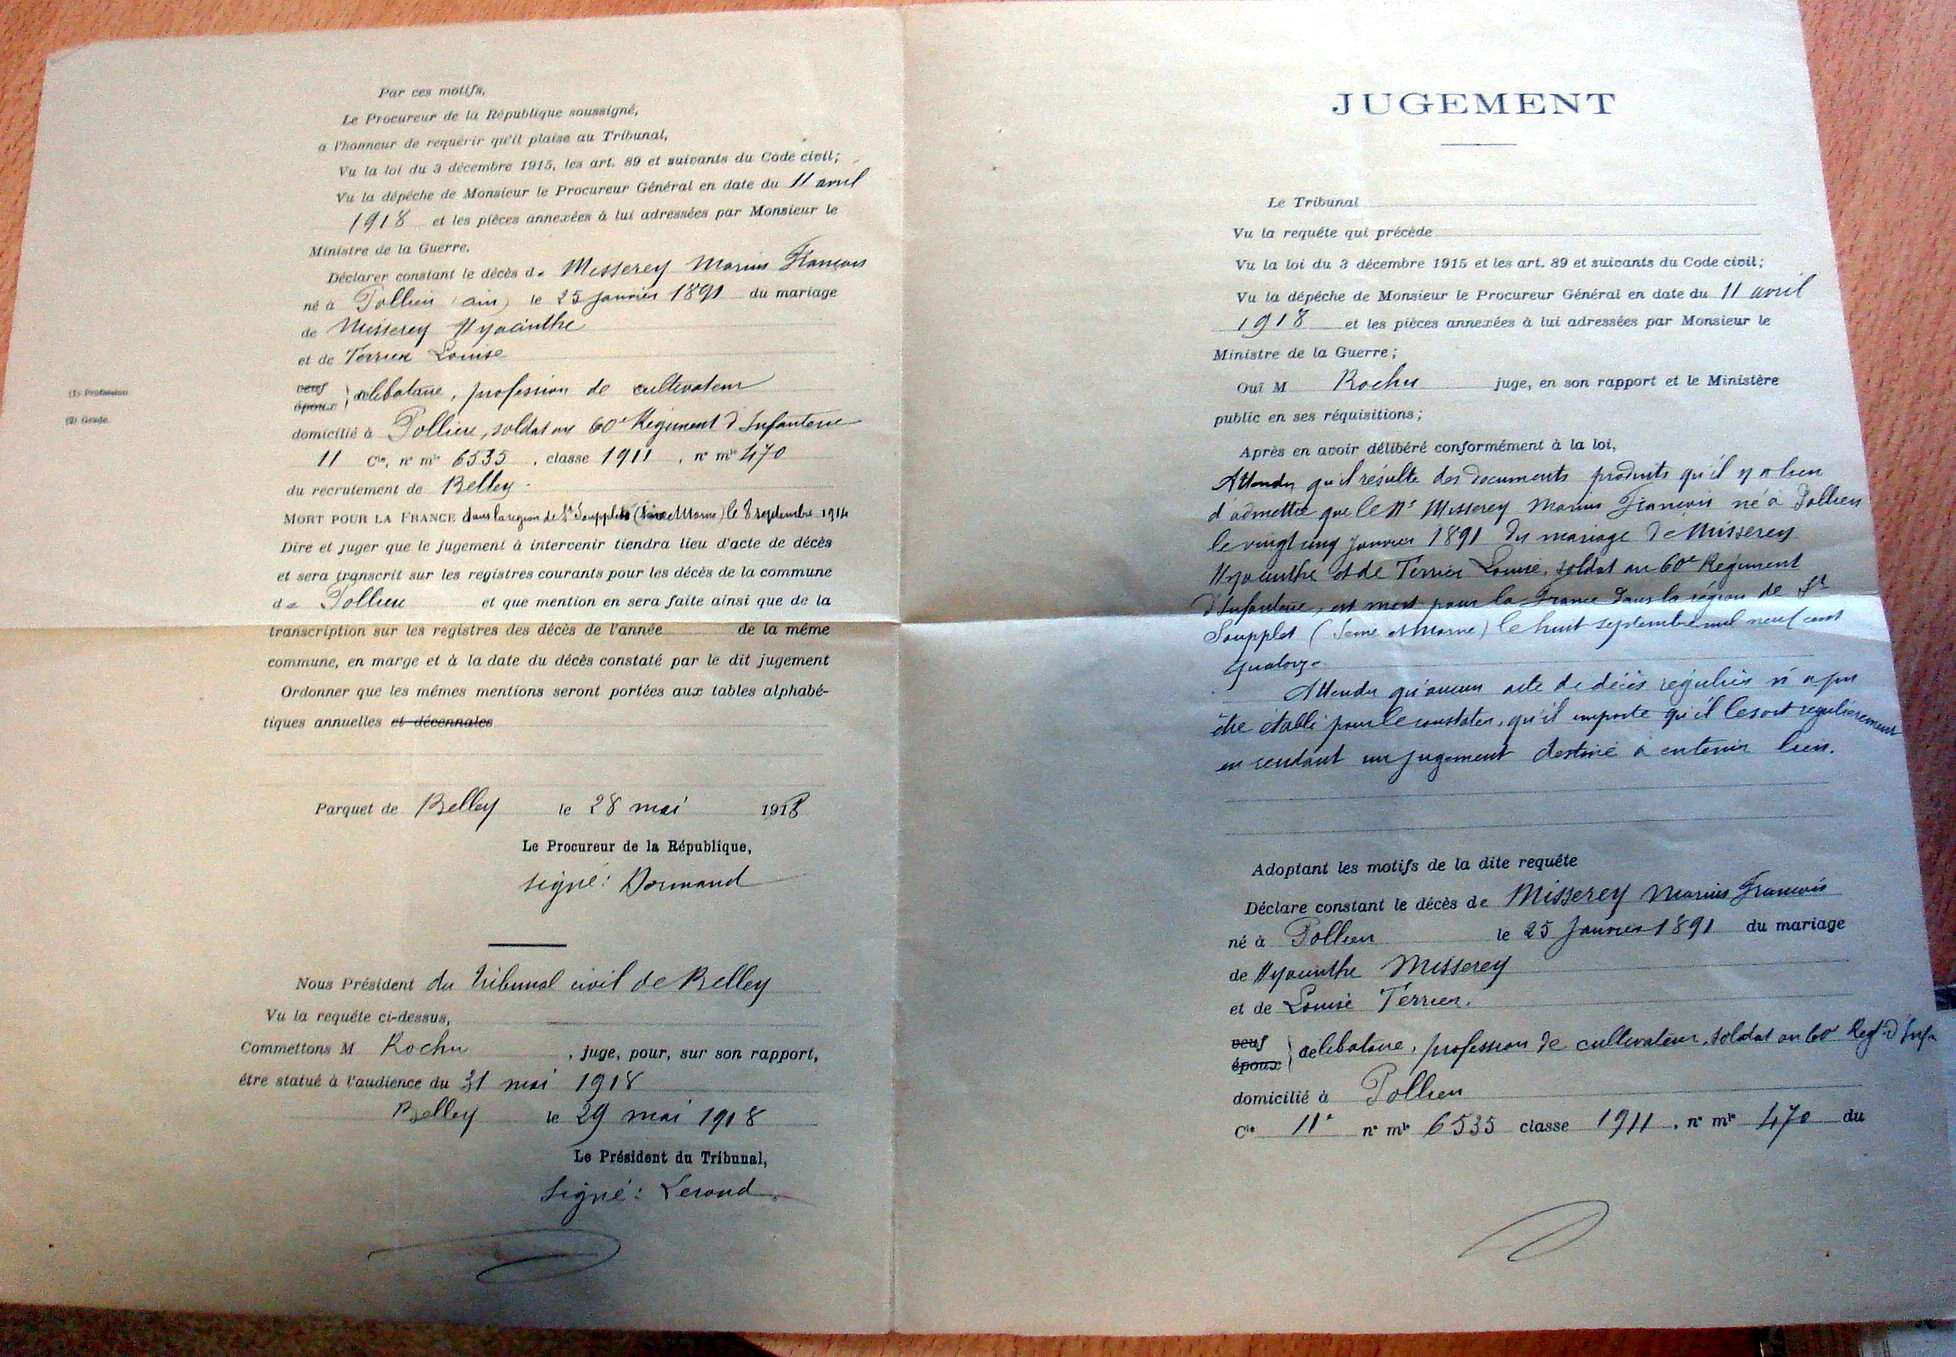 Par ces motifs,
Le Procureur de la République soussigné,
a l'honneur de requérir qu'il plaise au Tribunal,
Vu la loi du 3 décembre 1915, les art. 89 et suivants du Code civil;
Vu la dépêche de Monsieur le Procureur Général en date du 11 avril
1918 et les pièces annexées à lui adressées par Monsieur le
Ministre de la Guerre.
Déclarer constant le décès de Misserey Marius François
né à Pollieu (ain) le 25 janvier 1891 du mariage
de Misserey Hyacinthe
et de Terrier Louise
veuf
époux } célibataire, profession de cultivateur
(1) Profession
(2) Grade.
domicilié à Pollieu, soldat au 60e Régiment d'Infanterie
11 Cie, n° mle 6535, classe 1911, n° mle 470
du recrutement de Belley.
MORT POUR LA FRANCE dans la région de St Soupplets (Seine et Marne) le 8 septembre 1914
Dire et juger que le jugement à intervenir tiendra lieu d'acte de décès
et sera transcrit sur les registres courants pour les décès de la commune
de Pollieu et que mention en sera faite ainsi que de la
transcription sur les registres des décès de l'année de la même
commune, en marge et à la date du décès constaté par le dit jugement
Ordonner que les mêmes mentions seront portées aux tables alphabé-
tiques annuelles et décennales
Parquet de Belley le 28 mai 1918
Le Procureur de la République,
Signé: Dormand
Nous Président du Tribunal civil de Belley
Vu la requête ci-dessus,
Commettons M Rochu, juge, pour, sur son rapport,
être statué à l'audience du 31 mai 1918
Belley le 29 mai 1918
Le Président du Tribunal,
Signé:
JUGEMENT
Le Tribunal
Vu la requête qui précède
Vu la loi du 3 décembre 1915 et les art. 89 et suivants du Code civil;
Vu la dépêche de Monsieur le Procureur Général en date du 11 avril
1918 et les pièces annexées à lui adressées par Monsieur le
Ministre de la Guerre;
Ouï M Rochu juge, en son rapport et le Ministère
public en ses réquisitions;
Après en avoir délibéré conformément à la loi,
Attendu qu'il résulte des documents produits qu'il y a lieu
d'admettre que le Né Misserey Marius François né à Pollieu
le vingt cinq janvier 1891 du mariage de Misserey
Hyacinthe et de Terrier Louise, soldat au 60e Régiment
d'Infanterie, est mort pour la France dans la région de St
Soupplet (Seine et Marne) le huit septembre mil neuf cent
quatorze
Attendu qu'aucun acte de décès régulier n'a pu
être établi pour le constater, qu'il importe qu'il le soit régulièrement
en rendant un jugement destiné à en tenir lieu.
Adoptant les motifs de la dite requête
Déclare constant le décès de Misserey Marius François
né à Pollieu le 25 Janvier 1891 du mariage
de Hyacinthe Misserey
et de Louise Terrier.
veuf
époux } célibataire, profession de cultivateur, soldat au 60e Regt d'Infie
domicilié à Pollieu
Cie 11e n° mle 6535 classe 1911, n° mle 470 du